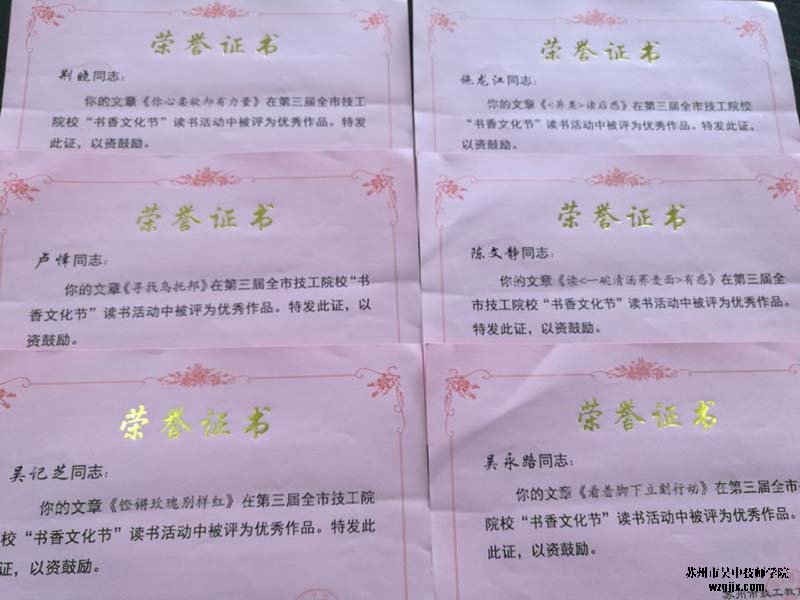 荣誉证书
荆晓同志：
你的文章《你心柔软却有力量》在第三届全市技工
院校“书香文化节”读书活动中被评为优秀作品。特发
此证，以资鼓励。
荣誉证书
施龙江同志：
你的文章《<异类>读后感》在第三届全市技工院校
“书香文化节”读书活动中被评为优秀作品。特发此证，
以资鼓励。
荣誉证书
卢怿同志：
你的文章《寻找乌托邦》在第三届全市技工院校“书
香文化节”读书活动中被评为优秀作品。特发此证，以
资鼓励。
荣誉证书
陈文静同志：
你的文章《读<一碗清汤荞麦面>有感》在第三届全
市技工院校“书香文化节”读书活动中被评为优秀作品。
特发此证，以资鼓励。
荣誉证书
吴记芝同志：
你的文章《铿锵玫瑰别样红》在第三届全市技工院
校“书香文化节”读书活动中被评为优秀作品。特发此
证，以资鼓励。
荣誉证书
吴永路同志：
你的文章《看着脚下立刻行动》在第三届全市技工
院校“书香文化节”读书活动中被评为优秀作品。
此证，以资鼓励。
苏州市技工教
苏州市吴中技师学院
wzgjjx.com